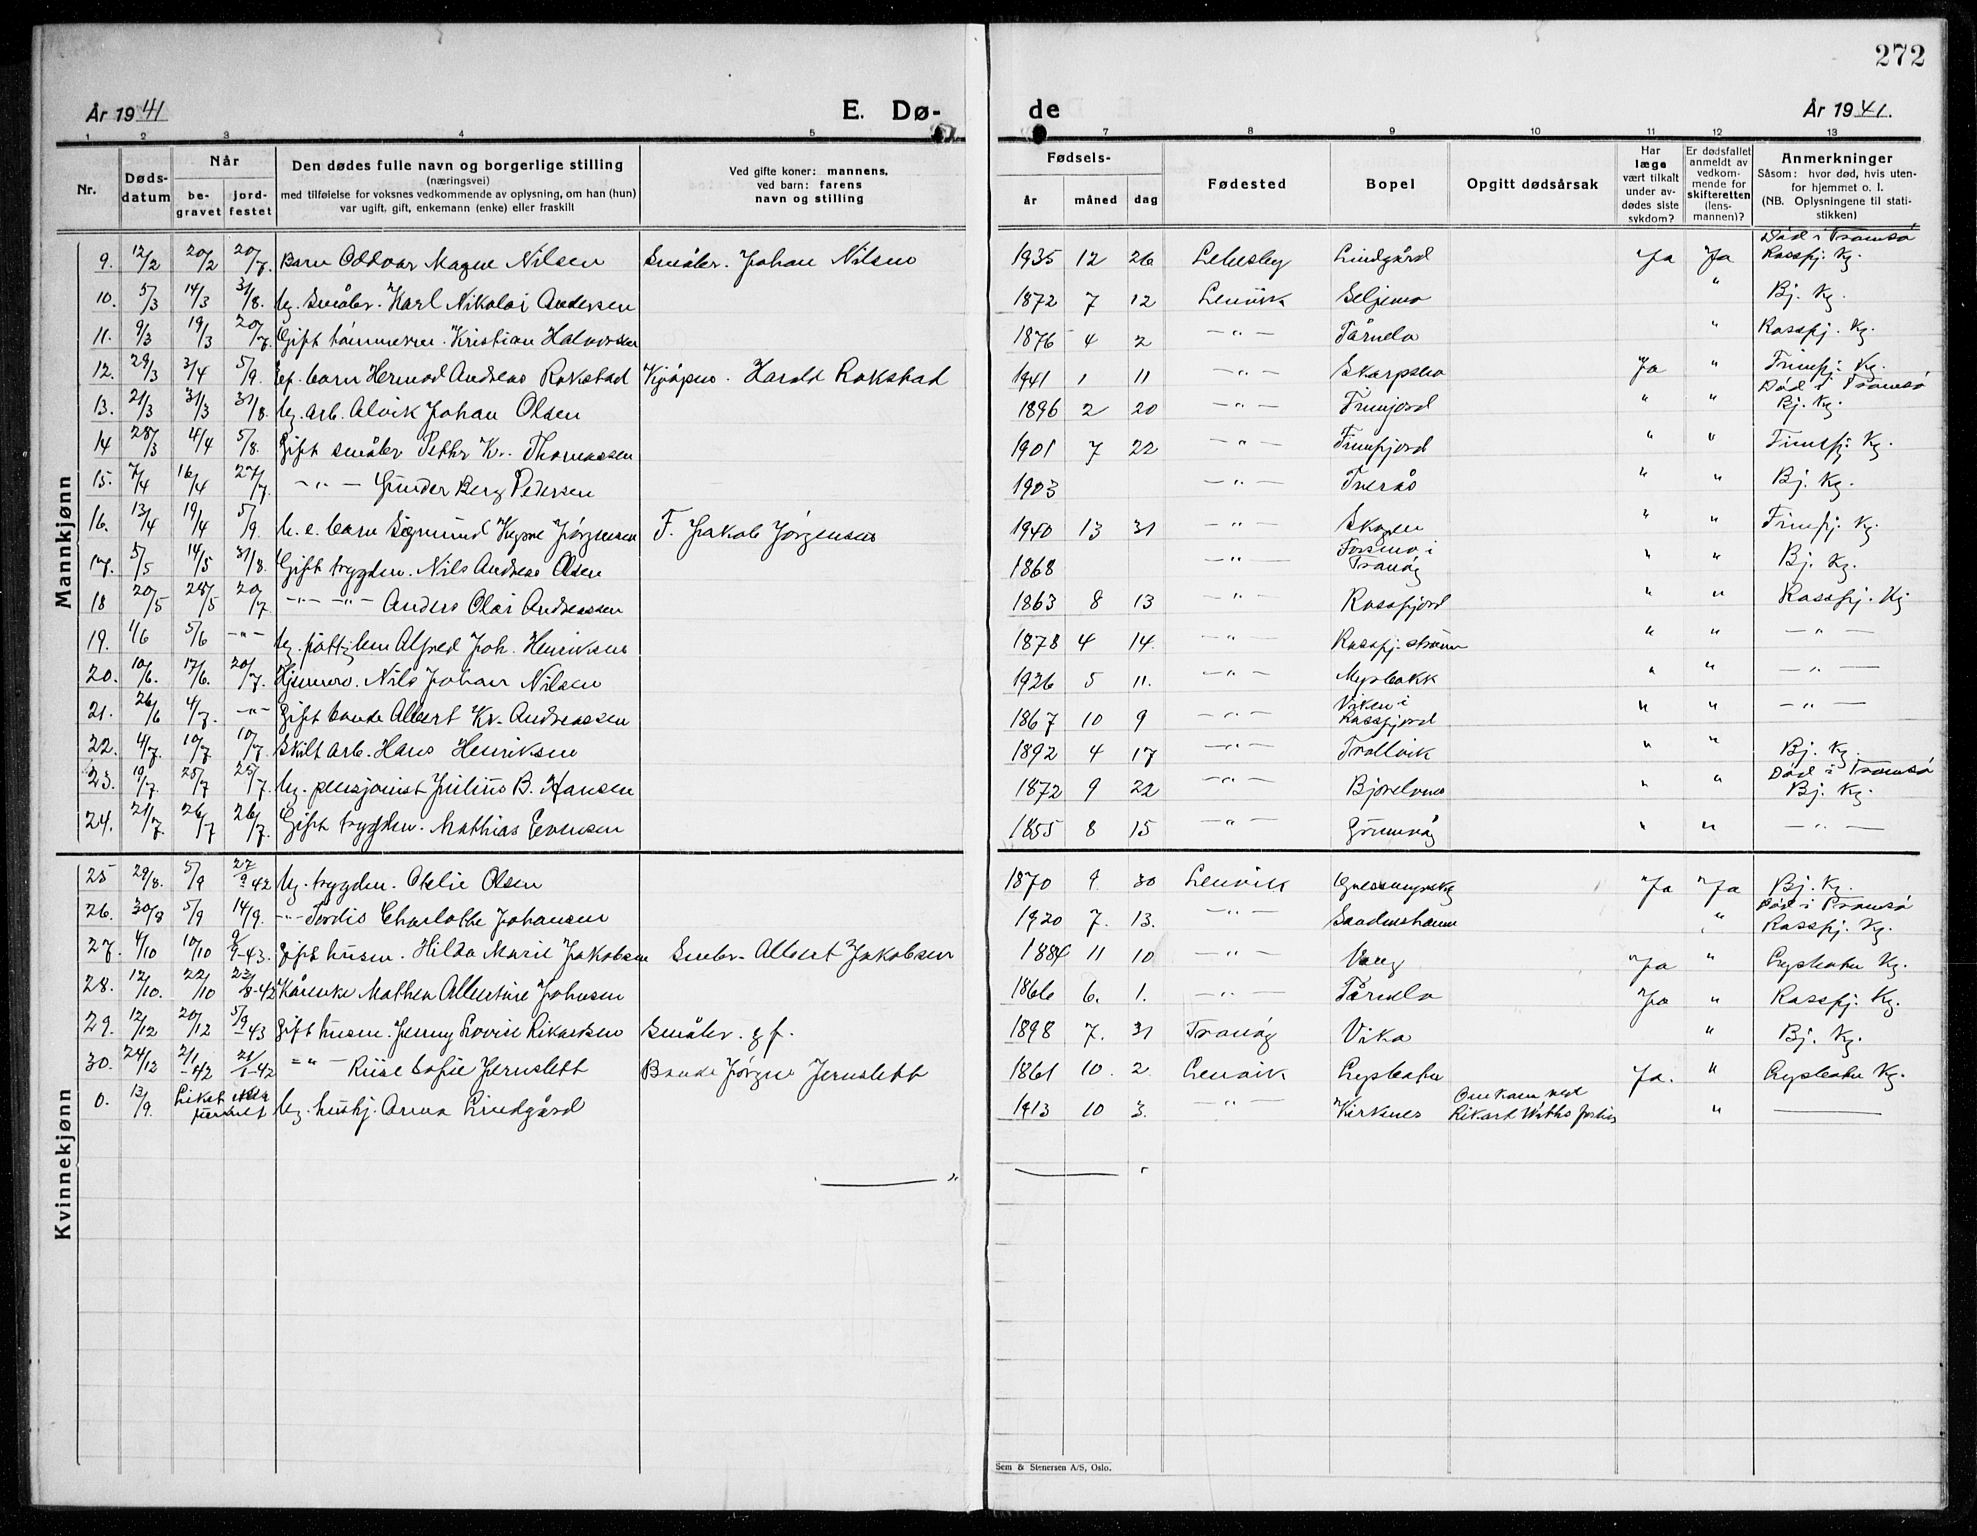 272
År 1941
E. Dø-
de
År 1941.
1 2 3 4 5 7 8 9 10 11 12 13
Nr.
Døds-
datum
Når
be-
gravet
jord-
festet
Den dødes fulle navn og borgerlige stilling
(næringsvei)
med tilføielse for voksnes vedkommende av oplysning, om han (hun)
var ugift, gift, enkemann (enke) eller fraskilt
Ved gifte koner: mannens,
ved barn: farens
navn og stilling
Fødsels-
år måned dag
Fødested
Bopel
Opgitt dødsårsak
Har
læge
vært tilkalt
under av-
dødes siste
sykdom?
Er dødsfallet
anmeldt av
vedkom-
mende for
skifteretten
(lens-
mannen)?
Anmerkninger
Såsom: hvor død, hvis uten-
for hjemmet o. l.
(NB. Oplysningene til stati-
stikken)
Mannkjønn
9. 12/2 20/2 20/7. Barn Oddvar Magne Nilsen Småbr. Johan Nilsen 1935 12 26 Lebesby Lindgård Ja Ja Død i Tromsø Rossfj. Kg.
10. 5/3 14/3 31/8. Ug. Småbr. Karl Nikolai Andersen 1872 7 12 Lenvik Seljemo " Bj. Kg.
11. 9/3 19/3 20/7. Gift tømmerm. Kristian Halvorsen 1876 4 2 -"- Tårnelv " Rossfj. Kg.
12. 29/3 3/4 5/9. barn Hermod Andreas Rokstad Kjøpm. Harald Rokstad 1941 1 11 -"- Ja " Finnfj. Kg.
13. 21/3 31/3 31/8. Ug. arb. Alvik Johan Olsen 1896 2 20 -"- Finnfjord " " Død i Tromsø Bj. Kg.
14 28/3 4/4 5/8. Gift småbr Petter Kr. Thomassen 1901 7 22 -"- Finnfjord " " Finnfj. Kg.
15. 7/4 16/4 27/7. -"- Gunder Berg Pedersen 1903 -"- Tverås " " Bj. Kg.
16. 13/4 19/4 5/9. U. e. barn Sigmund Jørgensen F. Jakob Jørgensen 1940 13 31 -"- Skogen " " Finnfj. Kg.
17. 5/5 14/5 31/8. Gift trygden. Nils Andreas Olsen 1868 -"- Forsmo i Tranøy " " Bj. Kg.
18 20/5 28/5 20/7 -"- -"- Anders Olai Andreassen 1863 8 13 -"- Rossfjord " " Rossfj. Kg
19. 1/6 5/6 -"- Ug. fattiglem Alfred Joh. Henriksen 1878 4 14. -"- Rossfj. strøm " " -"-
20. 10/6. 17/6. 20/7. Hjemmev. Nils Johan Nilsen 1926 5 11. -"- Myrbakk " " -"-
21. 26/6 4/7. -"- Gift bonde Albert Kr. Andreassen 1867 10 9 -"- Viken i Rossfjord " " -"-
22. 4/7. 10/7 10/7. Skilt arb. Hans Henriksen 1892 4 17 -"- Trollvik " " Bj. Kg.
23. 19/7. 25/7 25/7. Ug. pensjonist Julius B. Hansen 1872 9 22 -"- Bjorelvnes " " Død i Tromsø Bj. Kg.
24. 21/7. 26/7 26/7. Gift trygden. Mathias Evensen 1855 8 15 -"- Grunnvåg " " -"-
Kvinnekjønn
25 29/8. 5/9 27/9 42 Ug. trygden. Otelie Olsen 1870 9. 30 Lenvik Ja Ja Bj. Kg.
26. 30/8 5/9 14/9. -"- Tordis Charlotte Johansen 1920 7. 13. -"- " Død i Tromsø Rossfj. Kg.
27. 4/10 10/10 9/9-43. Gift husm. Hilda Marie Jakobsen Småbr. Albert Jakobsen 1884 11 10 -"- Vang Ja " Gysbotn Kg.
28. 12/10. 22/10 23/8-42 Kårenke Mathea Albertine Johnsen 1866 6. 1. -"- Tårnelv Ja " Rossfj. Kg.
29. 12/12 20/12 5/9-43 Gift husm. Jenny Lovise Rikardsen Småbr. g. f. 1898 7. 31 Tranøy Vika " Bj. Kg.
30. 24/12 2/1-42 21/1-42 -"- Sofie Jernslett Bonde Jørgen Jernslett 1861 10. 2. Lenvik Gysbotn Ja. " Gysbotn Kg.
0. 13/9. Liket ikke funnet Ug. hushj. Anna Lindgård 1913 10 3. -"- Kirknes Omkom ved Rikard Withs forlis "
Sem & Stenersen A/S, Oslo.